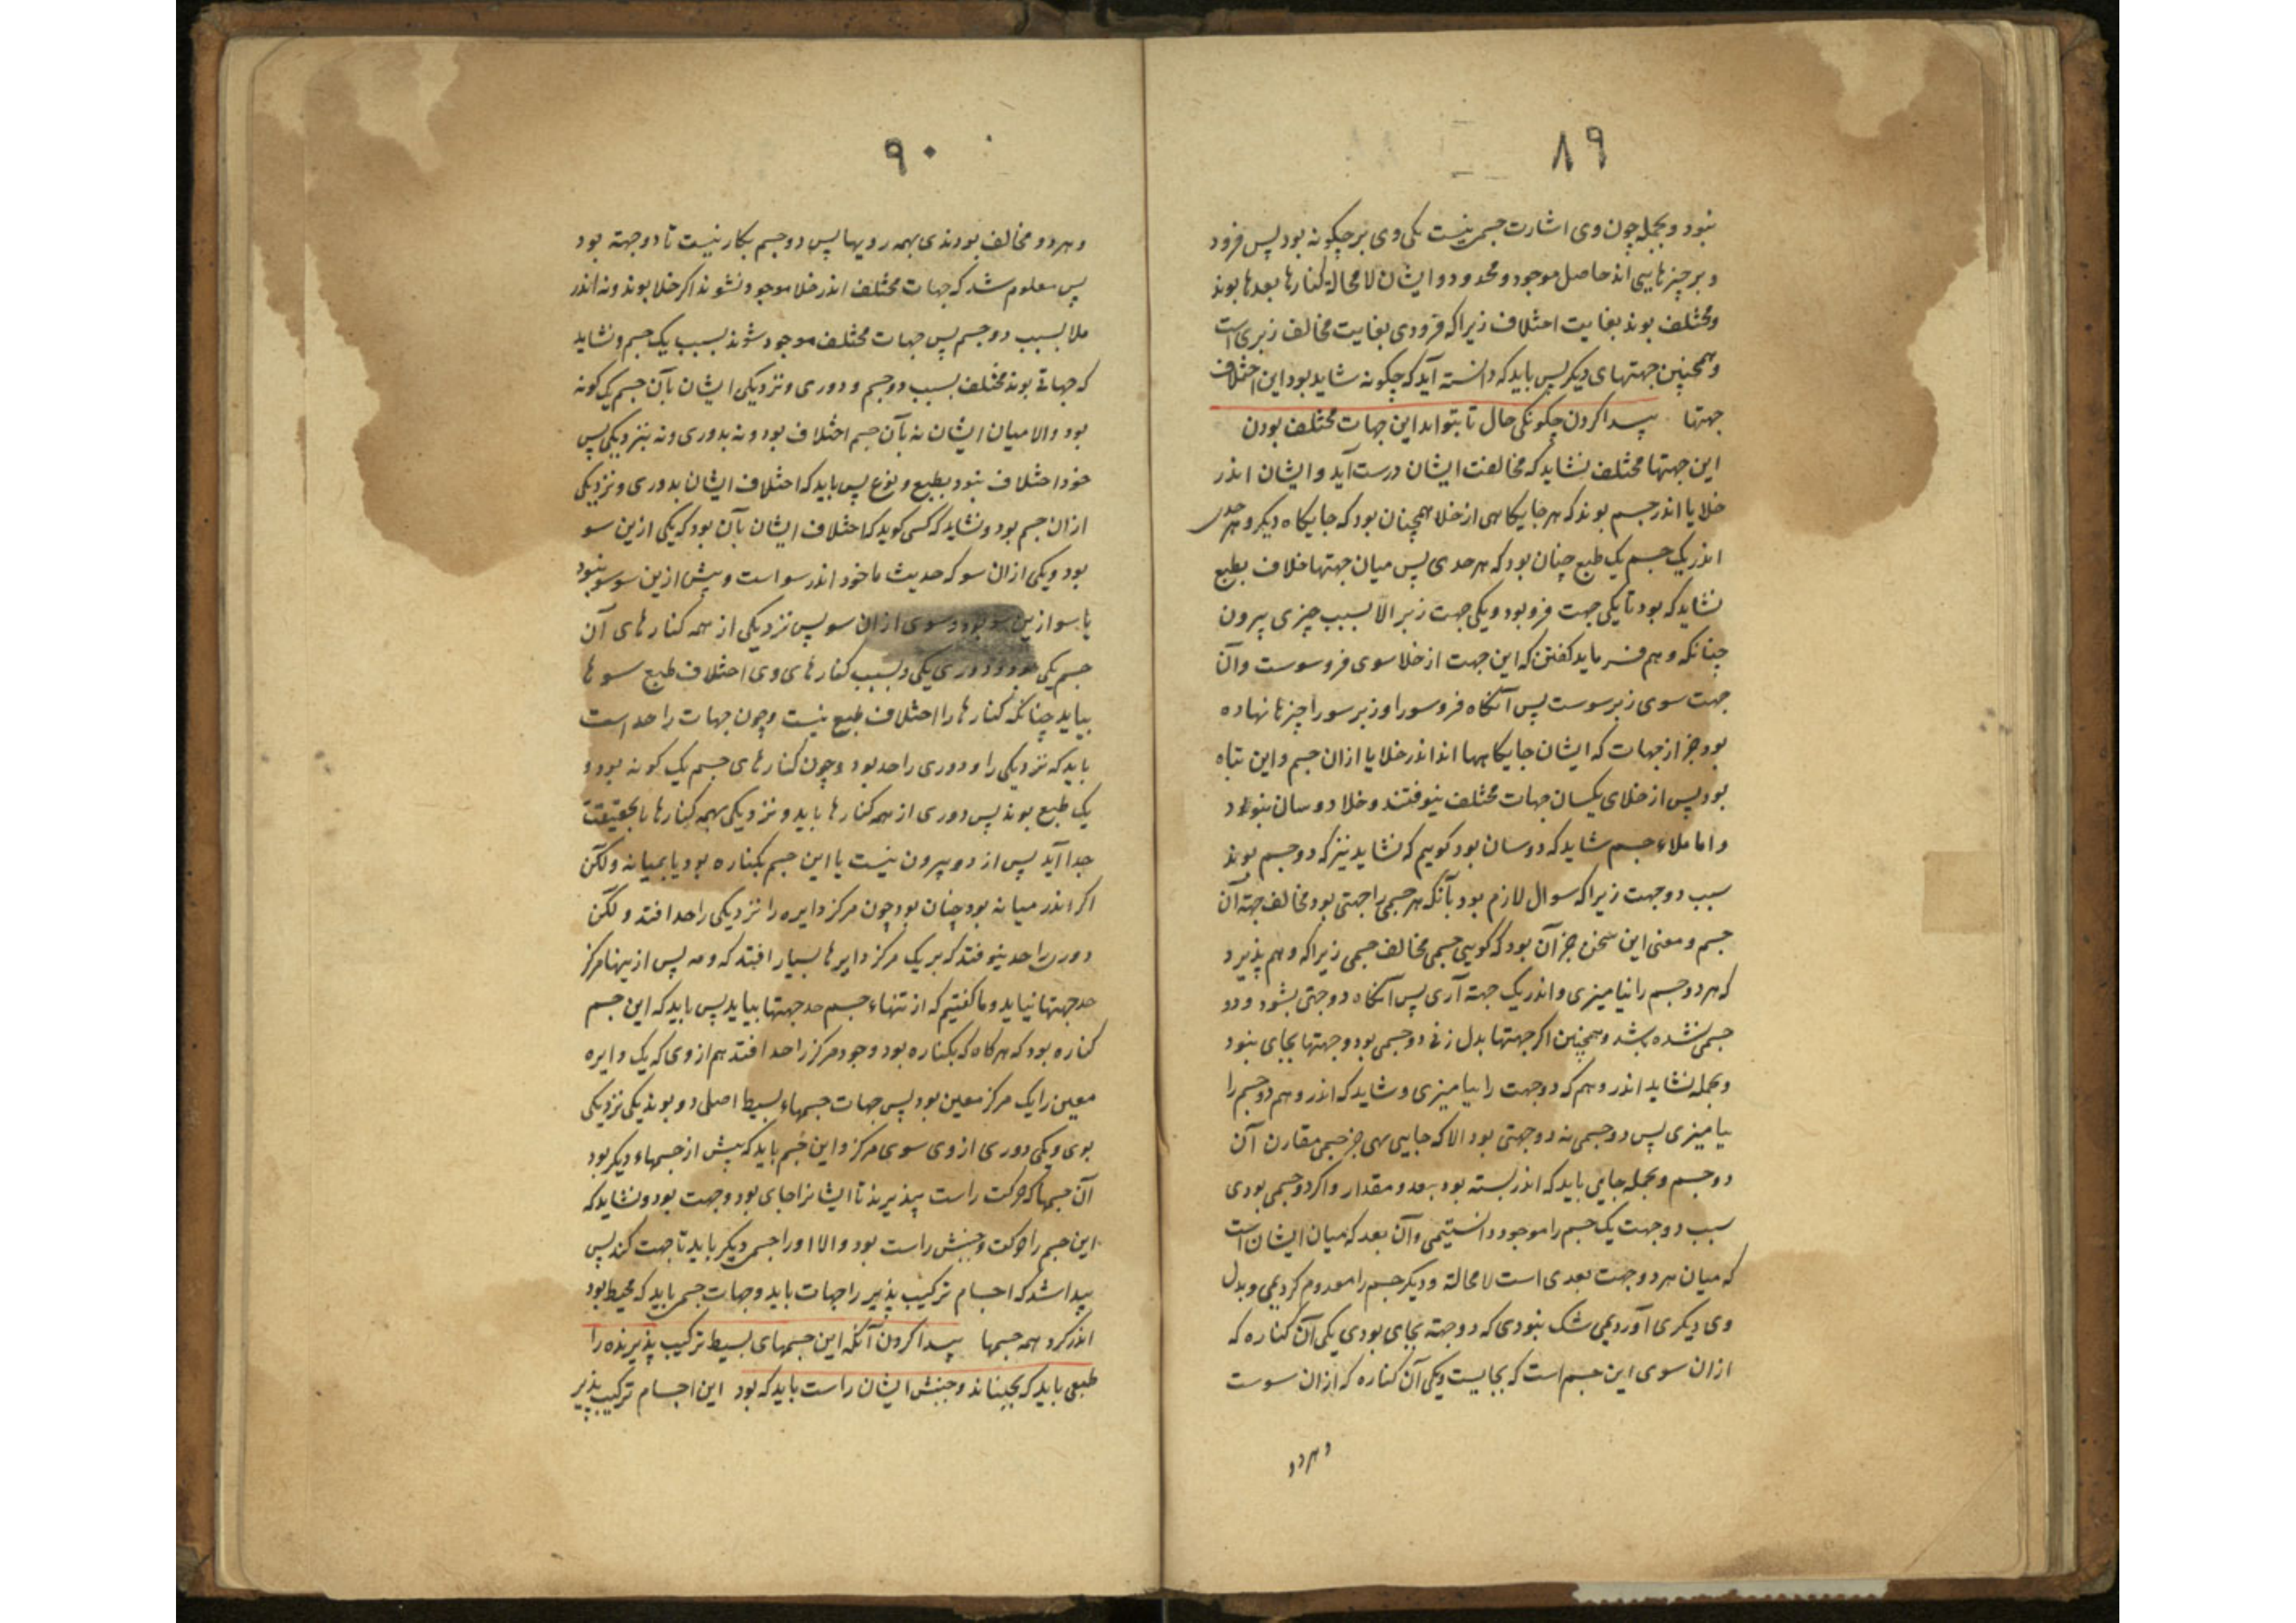 ۸۹
نبود و بجمله چون وی اشارت جسمی نیست یکی وی بر چگونه بود پس فرود
و بر چیزهایی اند حاصل موجود و محدود و ایشان لا محاله کنارها بعدها بوند
و مختلف بوند بغایت اختلاف زیرا که فرودی بغایت مخالف زبری است
و همچنین جهتهای دیکر پس باید که دانسته آید که چکونه شاید بود این اختلاف
جهتها پیدا کردن چکونکی حال تا بتواند این جهات مختلف بودن
این جهتها مختلف نشاید که مخالفت ایشان درست آید و ایشان اندر
خلا یا اندر جسم بوند که هر جایکاهی از خلا همچنان بود که جایکاه دیکر و هر حدی
اندر یک جسم یک طبع چنان بود که هر حدی پس میان جهتها خلاف بطبع
نشاید که بود تا یکی جهت فرو بود و یکی جهت زبر الا بسبب چیزی بیرون
چنانکه وهم فرماید کفتن که این جهت از خلا سوی فروسوست و آن
جهت سوی زبرسوست پس آنکاه فروسو را و زبرسو را چیزها نهاده
بود جز از جهات که ایشان جایکاهها اند اندر خلا یا ازان جسم و این تباه
بود پس از خلای یکسان جهات مختلف نیوفتند و خلا دو سان نبود
و اما ملاء جسم شاید که دوسان بود کوییم که نشاید نیز که دو جسم بوند
سبب دو جهت زیرا که سوال لازم بود بآنکه هر جسمی را جهتی بود مخالف جهة آن
جسم و معنی این سخن جز آن بود که کویی جسمی مخالف جسمی زیرا که وهم پذیرد
که هر دو جسم را نیامیزی و اندر یک جهة آری پس آنکاه دو جهتی بشود و دو
جسمی نشده بشد و همچنین اکر جهتها بدل زنی دو جسمی بود و جهتها بجای نبود
و بجمله نشاید اندر وهم که دو جهت را بیامیزی و شاید که اندر وهم دو جسم را
بیامیزی پس دو جسمی نه دو جهتی بود الا که جایی نهی جز جسمی مقارن آن
دو جسم و بجمله جایی باید که اندر بسته بود بعد و مقدار و اکر دو جسمی بودی
سبب دو جهت یک جسم را موجود دانستیمی و آن بعد که میان ایشان است
که میان هر دو جهت بعدی است لا محالة و دیکر جسم را معدوم کردیمی و بدل
وی دیکری آوردیمی شک نبودی که دو جهة بجای بودی یکی آن کناره که
ازان سوی این جسم است که بجایست و یکی آن کناره که ازان سوست
و هر دو
۹۰
و هر دو مخالف بودندی بهمه رویها پس دو جسم بکار نیست تا دو جهة بود
پس معلوم شد که جهات مختلف اندر خلا موجود نشوند اکر خلا بوند و نه اندر
ملا بسبب دو جسم پس جهات مختلف موجود شوند بسبب یک جسم و نشاید
که جهاتی بوند مختلف بسبب دو جسم و دوری و نزدیکی ایشان بآن جسم یک کونه
بود و الا میان ایشان نه بآن جسم اختلاف بود و نه بدوری و نه بنزدیکی پس
خود اختلاف نبود بطبع و نوع پس باید که اختلاف ایشان بدوری و نزدیکی
ازان جسم بود و نشاید که کسی کوید که اختلاف ایشان بآن بود که یکی ازین سو
بود و یکی ازان سو که حدیث ما خود اندر سو است و پیش ازین سو سو نبود
یا سو ازین سو بود و سوی ازان سو پس نزدیکی از همه کنارهای آن
جسم یکی بود و دوری یکی و بسبب کنارهای وی اختلاف طبع سوها
بیاید چنانکه کنارها را اختلاف طبع نیست و چون جهات را حد است
باید که نزدیکی را و دوری را حد بود و چون کنارهای جسم یک کونه بود و
یک طبع بوند پس دوری از همه کنارها باید و نزدیکی بهمه کنارها بحقیقت
جدا آید پس از دو بیرون نیست یا این جسم بکناره بود یا بمیانه ولکن
اکر اندر میانه بود چنان بود چون مرکز دایره را نزدیکی را حد افتد ولکن
دوری را حد نیوفتد که بر یک مرکز دایرها بسیار افتد که و مه پس از تنها مرکز
حد جهتها نیاید و ما کفتیم که از تنهاء جسم حد جهتها بیاید پس باید که این جسم
کناره بود که هر کاه که بکناره بود وجود مرکز را حد افتد هم از وی که یک دایره
معین را یک مرکز معین بود پس جهات جسمهاء بسیط اصلی دو بوند یکی نزدیکی
بوی و یکی دوری از وی سوی مرکز و این جسم باید که پیش از جسمهاء دیکر بود
آن جسمها که حرکت راست بپذیرند تا ایشانرا جای بود و جهت بود و نشاید که
این جسم را حرکت و جنبش راست بود و الا او را جسمی دیکر باید تا جهت کند پس
پیدا شد که اجسام ترکیب پذیر را جهات باید و جهات جسمی باید که محیط بود
اندر کرد همه جسمها پیدا کردن آنکه این جسمهای بسیط ترکیب پذیرنده را
طبعی باید که بجنباند و جنبش ایشان راست باید که بود این اجسام ترکیب پذیر